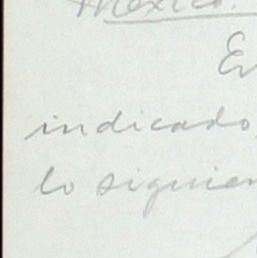 Mexico.
En
indicado
lo siguien